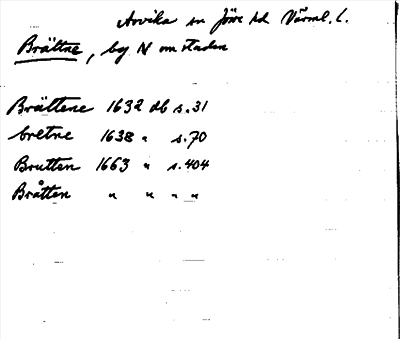 Arvika sn Jösse hd Värml. l.
Brättne, by N om staden
Brättene 1632 db s.31
bretne 1638 " s.70
Brutten 1663 " s.404
Bråtten " " " "